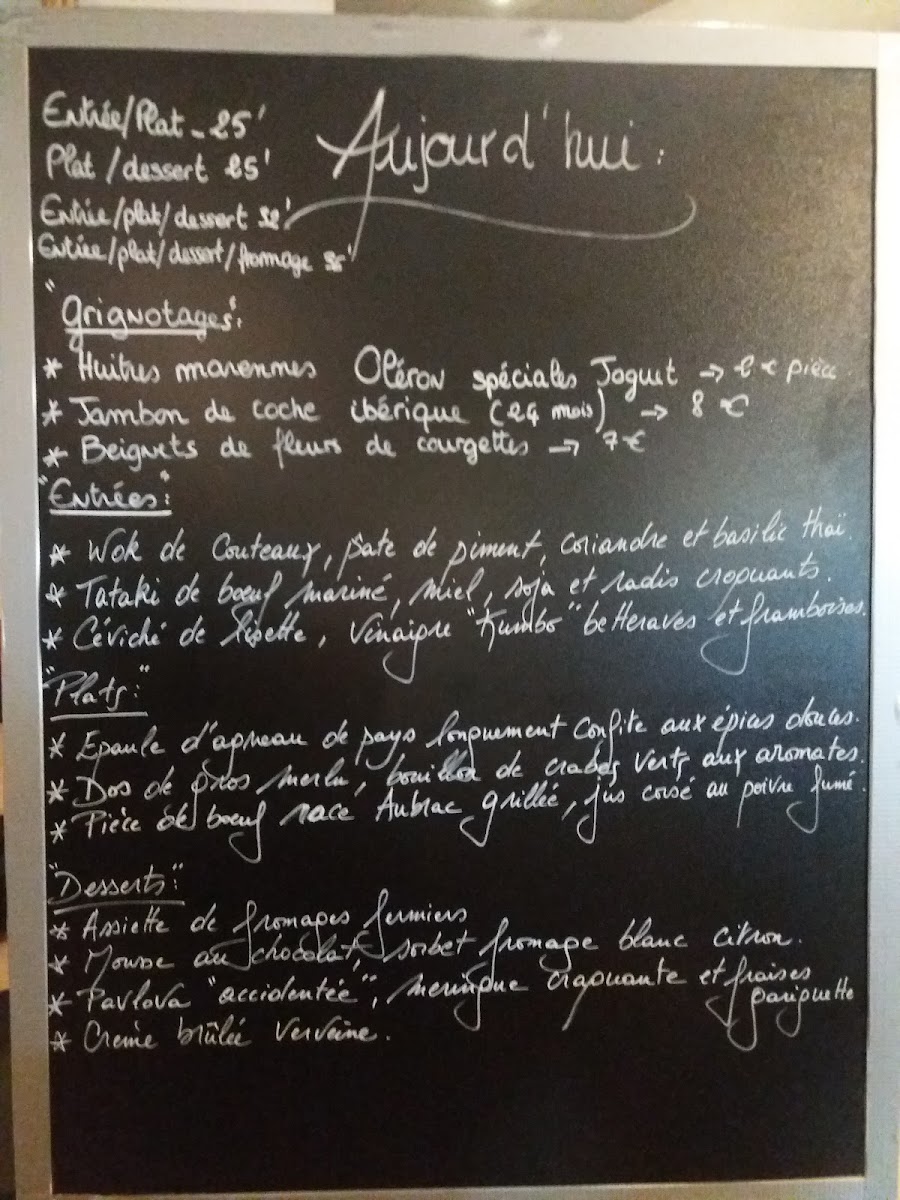 Entrée/Plat - 25'
Aujourd'hui :
Plat/dessert 25'
Entrée/plat/dessert 32'
Entrée/plat/dessert/fromage 36'
"Grignotages":
* Huitres marennes Oléron spéciales Joguet → 2 € pièce
* Jambon de coche ibérique (24 mois) → 8 €
* Beignets de fleurs de courgettes → 7 €
"Entrées":
* Wok de Couteaux, pate de piment, coriandre et basilic thaï.
* Tataki de bœuf mariné, miel, soja et radis croquants.
* Céviché de lisette, vinaigre "Kumbo" betteraves et framboises.
"Plats:"
* Epaule d'agneau de pays longuement confite aux épices douces.
* Dos de gros merlu, bouillon de crabes verts aux aromates.
* Pièce de bœuf race Aubrac grillée, jus corsé au poivre fumé.
"Desserts:"
* Assiette de fromages fermiers
* Mousse au chocolat, sorbet fromage blanc citron.
* Pavlova "accidentée", meringue craquante et fraises
gariguette
* Crème brûlée verveine.